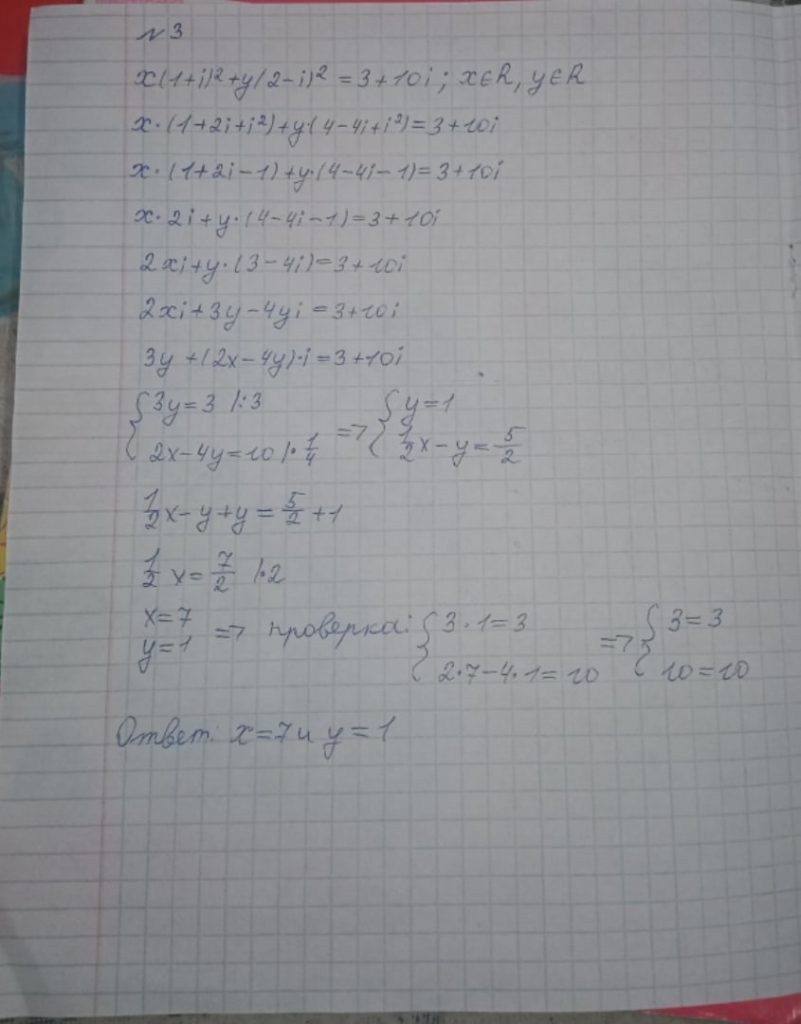 №3
x(1+i)²+y(2-i)²=3+10i; x∈R, y∈R
x·(1+2i+i²)+y·(4-4i+i²)=3+10i
x·(1+2i-1)+y·(4-4i-1)=3+10i
x·2i+y·(4-4i-1)=3+10i
2xi+y·(3-4i)=3+10i
2xi+3y-4yi=3+10i
3y+(2x-4y)·i=3+10i
{3y=3 |:3 => {y=1
2x-4y=10 |·1/4 1/2x-y=5/2
1/2x-y+y=5/2+1
1/2x=7/2 |·2
x=7
y=1 => проверка: {3·1=3 => {3=3
2·7-4·1=10 10=10
Ответ: x=7 и y=1